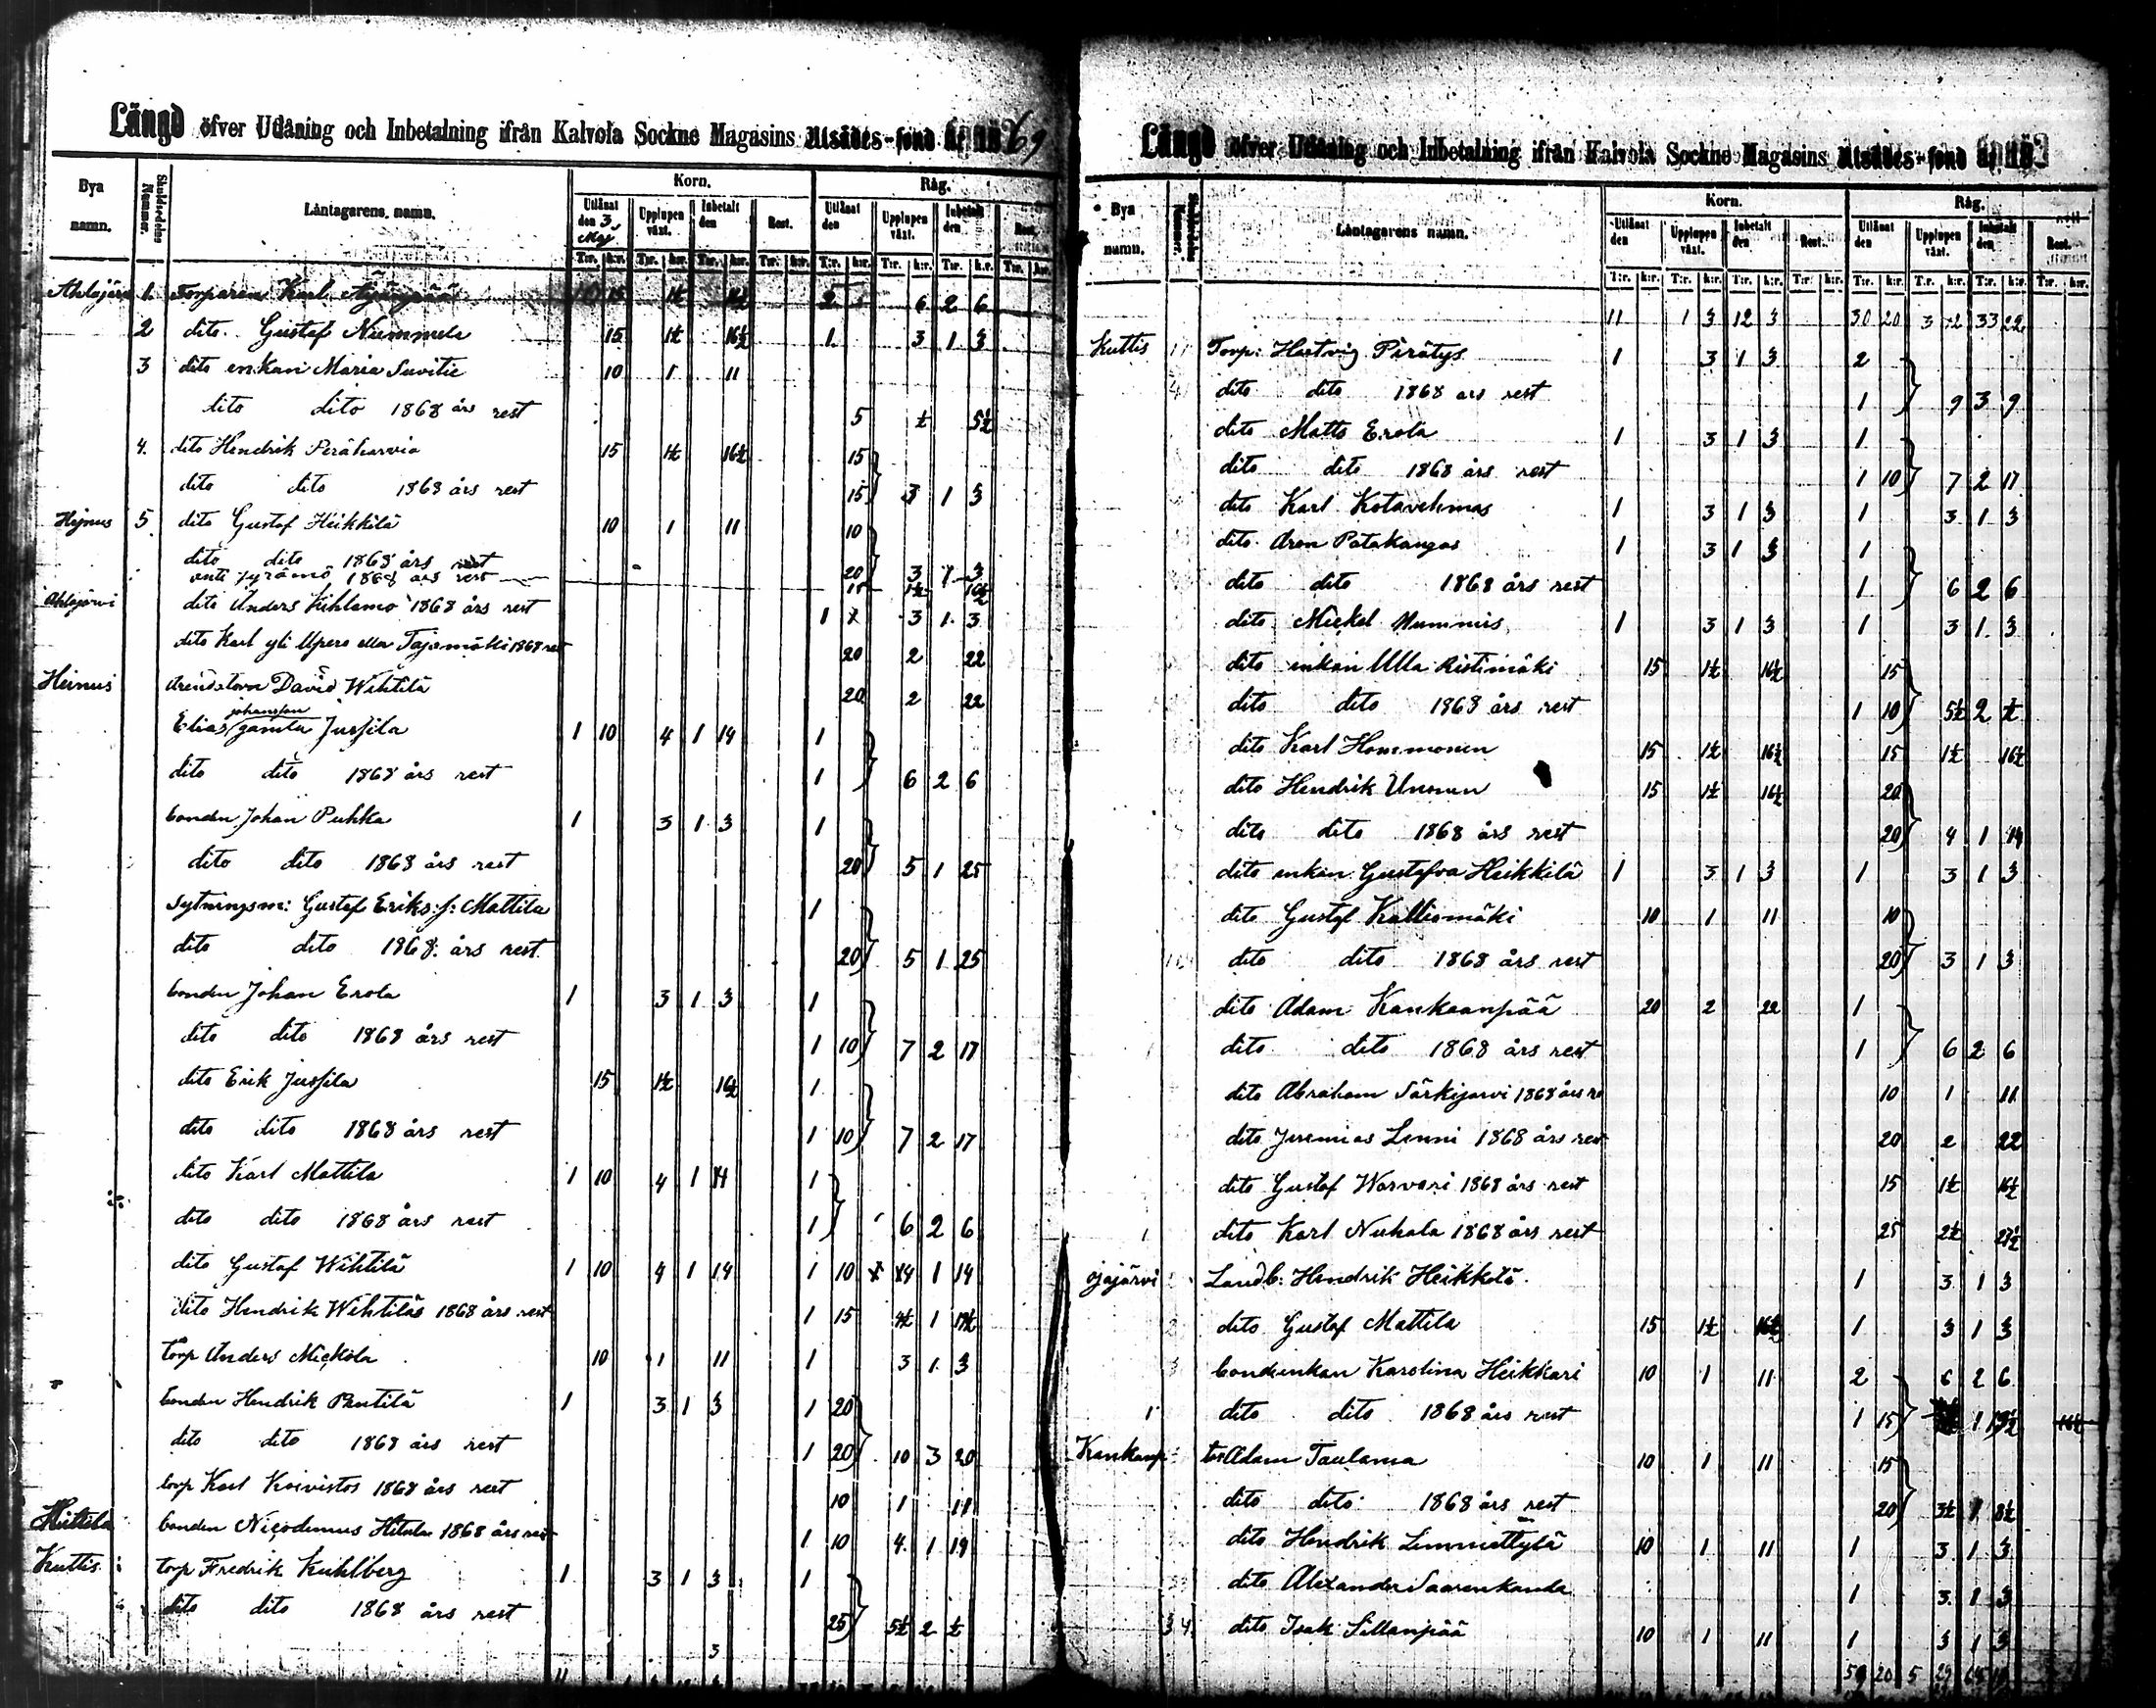 Längd öfver Utlåning och Inbetalning ifrån Kalvola Sockne Magasins Utsädes-fond år 1869
Bya namn. Skuldsedelns Nummer. Låntagarens namn. Korn. Råg.
Utlånat den 3 Maj Upplupen växt. Inbetalt den Rest. Utlånat den Upplupen växt. Inbetalt den Rest.
T:r. k:r. T:r. k:r. T:r. k:r. T:r. k:r. T:r. k:r. T:r. k:r. T:r. k:r. T:r. k:r.
1. Torparen Karl 15 1½ 16½ 2 6 2 6
2 dito Gustaf Nummela 15 1½ 16½ 1 3 1 3
3 dito enkan Maria Suvitie 10 1 11
dito dito 1868 års rest 5 ½ 5½
4. dito Hendrik Peräharvia 15 1½ 16½ 15
dito dito 1868 års rest 15 3 1 3
Hejnus 5 dito Gustaf Heikkilä 10 1 11 10
dito dito 1868 års rest 20 3 1 3
1868 års rest 15 1½ 16½
Ahlajärvi dito Anders Kihlamo 1868 års rest 1 3 1 3
dito Karl yli Upero eller Tajamäki 1868 rest 20 2 22
Heinus David Wihtilä 20 2 22
johansson
Elias gamla Jussila 1 10 4 1 14 1
dito dito 1868 års rest 1 6 2 6
bonden Johan Puhka 1 3 1 3 1
dito dito 1868 års rest 20 5 1 25
Sytningsm: Gustaf Eriks: s: Mattila 1
dito dito 1868. års rest 20 5 1 25
bonden Johan Erola 1 3 1 3 1
dito dito 1868 års rest 1 10 7 2 17
dito Erik Jussila 15 1½ 16½ 1
dito dito 1868 års rest 1 10 7 2 17
dito Karl Mattila 1 10 4 1 14 1
dito dito 1868 års rest 1 6 2 6
dito Gustaf Wihtilä 1 10 4 1 14 1 10 4 1 14
dito Hendrik Wihtiläs 1868 års rest 1 15 4½ 1 19½
torp Anders Mickola 10 1 11 1 3 1 3
bonden Hendrik Pentilä 1 3 1 3 1 20
dito dito 1868 års rest 1 20 10 3 20
torp Karl Koivistos 1868 års rest 10 1 11
Hittila bonden Nicodemus Hitula 1868 års rest 1 10 4 1 14
Kuttis torp Fredrik Kuhlberg 1 3 1 3 1
dito dito 1868 års rest 25 5½ 2 ½
Längd öfver Utlåning och Inbetalning ifrån Kalvola Sockne Magasins Utsädes-fond år 18
Bya namn. Skuldsedelns Nummer. Låntagarens namn. Korn. Råg.
Utlånat den Upplupen växt. Inbetalt den Rest. Utlånat den Upplupen växt. Inbetalt den Rest.
T:r. k:r. T:r. k:r. T:r. k:r. T:r. k:r. T:r. k:r. T:r. k:r. T:r. k:r. T:r. k:r.
11 1 3 12 3 30 20 3 2 33 22
Kuttis Torp: Hartvig Perätys 1 3 1 3 2
dito dito 1868 års rest 1 9 3 9
dito Matts Erola 1 3 1 3 1
dito dito 1868 års rest 1 10 7 2 17
dito Karl Kotavehmas 1 3 1 3 1 3 1 3
dito Aron Patakangas 1 3 1 3 1
dito dito 1868 års rest 1 6 2 6
dito Mickel Nummis 1 3 1 3 1 3 1 3
dito enkan Ulla Ristimäki 15 1½ 16½ 15
dito dito 1868 års rest 1 10 5½ 2 ½
dito Karl Hommonen 15 1½ 16½ 15 1½ 16½
dito Hendrik Unonen 15 1½ 16½ 20
dito dito 1868 års rest 20 4 1 14
dito enkan Gustafva Heikkilä 1 3 1 3 1 3 1 3
dito Gustaf Kalliomäki 10 1 11 10
dito dito 1868 års rest 20 3 1 3
dito Adam Kankaanpää 20 2 22 1
dito dito 1868 års rest 1 6 2 6
dito Abraham Särkijarvi 1868 års re 10 1 11
dito Jeremias Lenni 1868 års rest 20 2 22
dito Gustaf Warvari 1868 års rest 15 1½ 16½
dito Karl Nuhala 1868 års rest 25 2½ 27½
ojajärvi Landb: Hendrik Heikkilä 1 3 1 3
dito Gustaf Mattila 15 1½ 16½ 1 3 1 3
bondenkan Karolina Heikkari 10 1 11 2 6 2 6
dito dito 1868 års rest 1 15 1 19½ 16½
Kankanp to Adam Taulama 10 1 11 15
dito dito 1868 års rest 20 3½ 1 8½
dito Hendrik Limmattylä 10 1 11 1 3 1 3
dito Alexander Saarenkanda 1 3 1 3
34 dito Isak Sillanpää 10 1 11 1 3 1 3
59 20 5 29